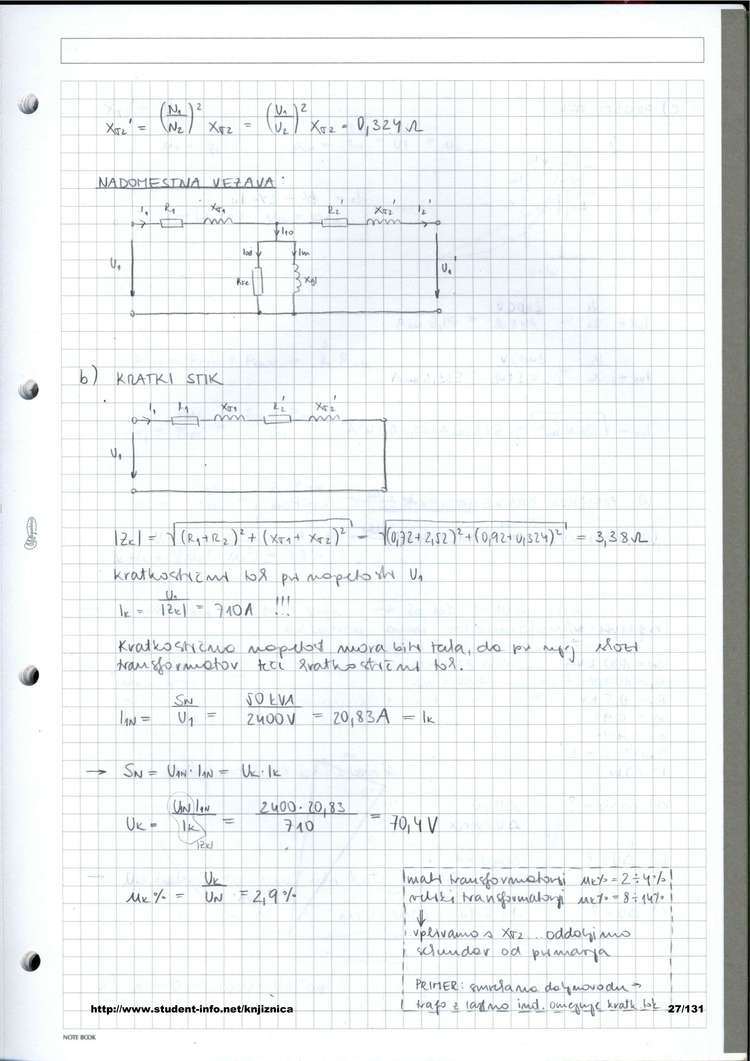 Xσ2' = (N1/N2)² Xσ2 = (U1/U2)² Xσ2 = 0,324 Ω
NADOMESTNA VEZAVA:
I1 R1 Xσ1 R2' Xσ2' I2'
I10
U1 Im U1'
RFe
b) KRATKI STIK
I1 R1 Xσ1 R2' Xσ2'
U1
|ZK| = √(R1+R2)² + (Xσ1 + Xσ2)² = √(0,72+2,52)² + (0,92+0,324)² = 3,38 Ω
kratkostični tok pri napetosti U1
IK = U1/|ZK| = 710A !!!
Kratkostično napetost mora biti taka, da pri njej skozi
transformator teči kratkostični tok.
I1N = SN/U1 = 50 kVA/2400V = 20,83A = IK
→ SN = U1N · I1N = UK · IK
UK = U1N I1N/IK = 2400 · 20,83/710 = 70,4 V
|ZK|
uK% = UK/UN = 2,9 %
mali transformatorji uK% = 2 ÷ 4 %
veliki transformatorji uK% = 8 ÷ 14%
↓
vplivamo s Xσ2 oddaljimo
sekundar od primarja
PRIMER: daljnovodu →
trafo z ind. omejuje kratk tok
http://www.student-info.net/knjiznica 27/131
NOTE BOOK